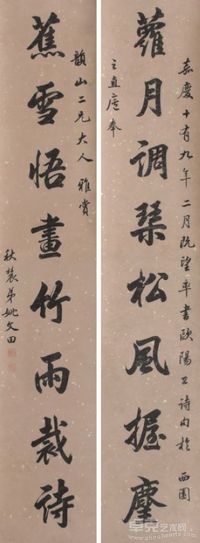 嘉慶十有九年二月既望率書歐陽公詩句於西園
之直廬奉
蘿月調琴松風握麈
蕉雪悟畫竹雨裁詩
韻山二兄大人雅賞
秋農弟姚文田